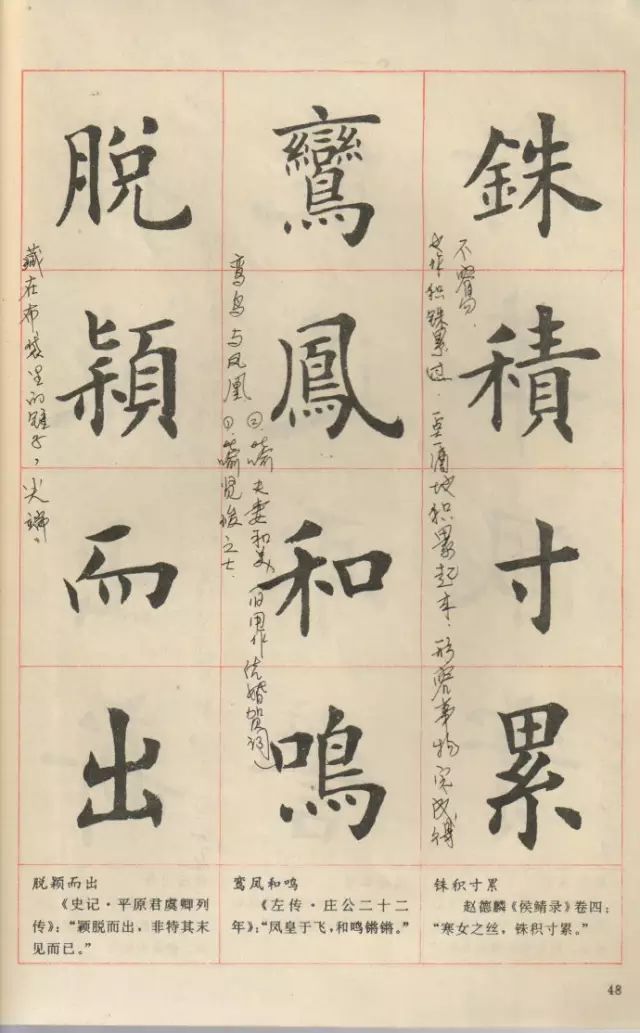 銖積寸累
点一滴地积累起来.形容事物完成得
不容易.
鸞鳳和鳴
鸾鸟与凤凰
①.喻贤俊之士.
②.喻夫妻和美,旧用作结婚贺词
脱穎而出
藏在布袋里的锥子,尖端
铢积寸累
赵德麟《侯鲭录》卷四:
“寒女之丝,铢积寸累。”
鸾凤和鸣
《左传·庄公二十二
年》:“凤皇于飞,和鸣锵锵。”
脱颖而出
《史记·平原君虞卿列
传》:“颖脱而出,非特其末
见而已。”
48